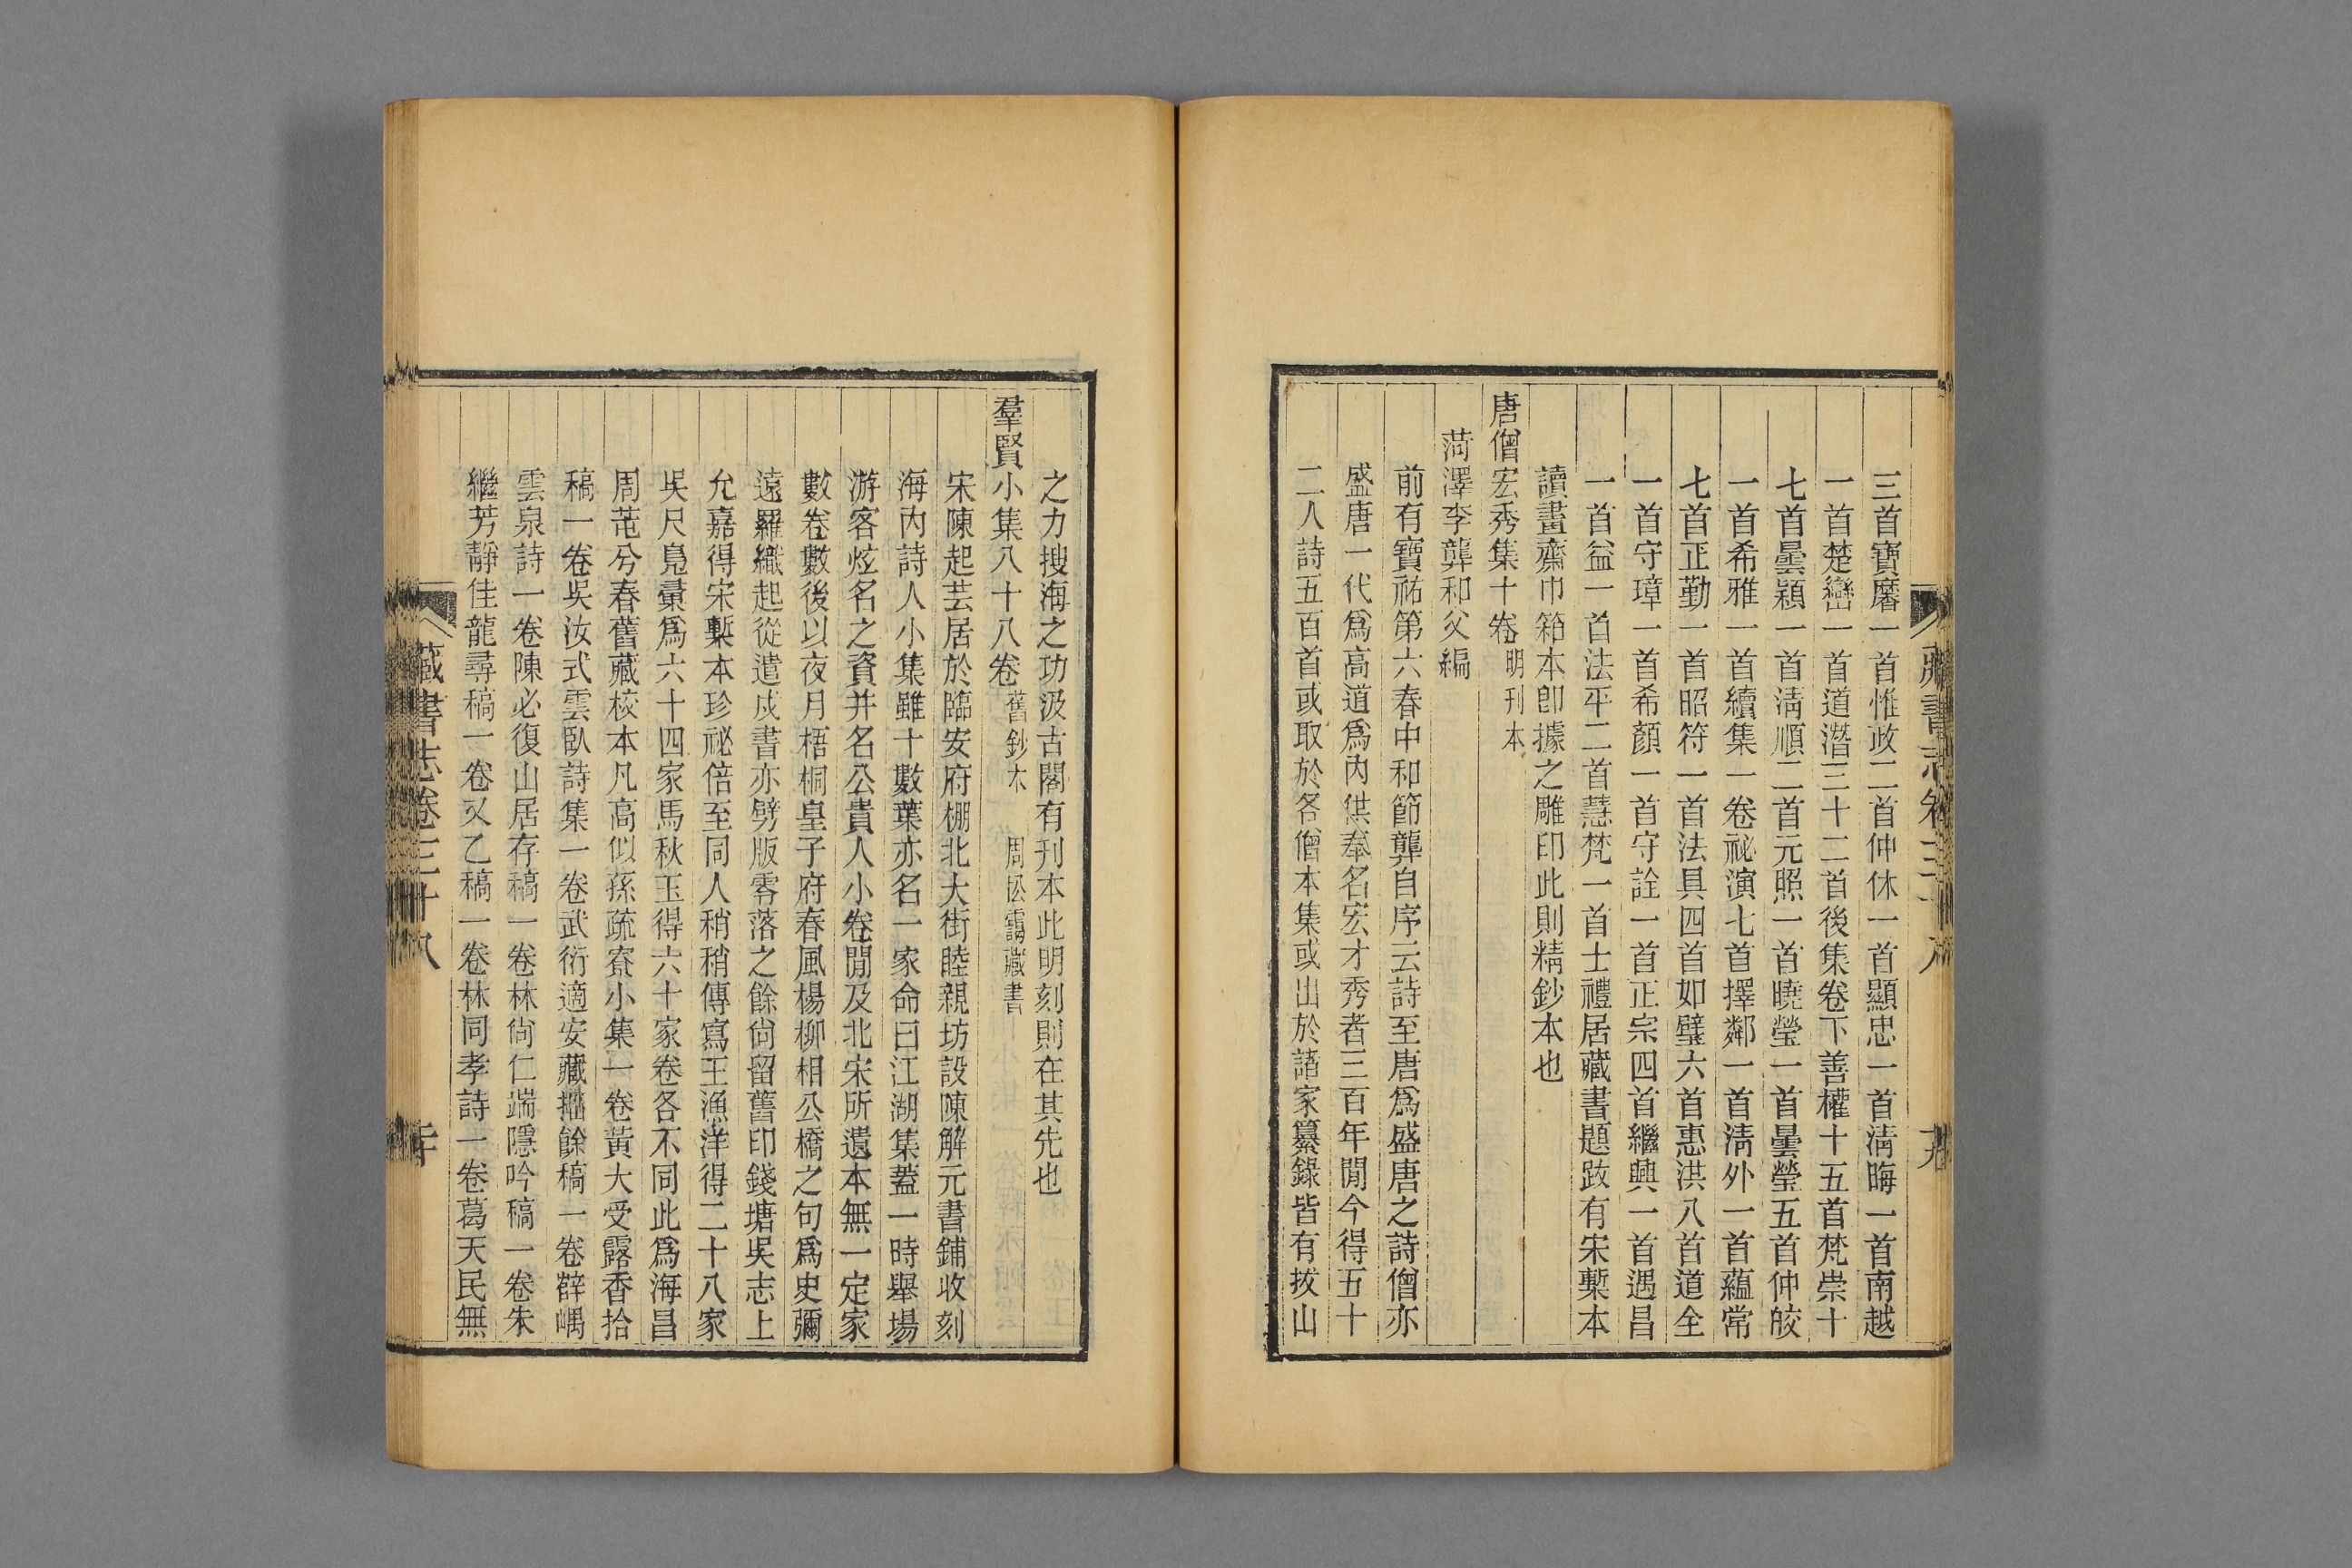 三首寶麐一首惟政二首仲休一首顯忠一首清晦一首南越
一首楚巒一首道潛三十二首後集卷下善權十五首梵崇十
七首曇穎一首清順二首元照一首曉瑩一首曇瑩五首仲皎
一首希雅一首續集一卷祕演七首擇鄰一首清外一首蘊常
七首正勤一首昭符一首法具四首如璧六首惠洪八首道全
一首守璋一首希顏一首守詮一首正宗四首繼興一首遇昌
一首益一首法平二首慧梵一首士禮居藏書題跋有宋槧本
讀畫齋巾箱本卽據之雕印此則精鈔本也
唐僧宏秀集十卷 明刊本
菏澤李龏和父編
前有寶祐第六春中和節龏自序云詩至唐爲盛唐之詩僧亦
盛唐一代爲高道爲內供奉名宏才秀者三百年閒今得五十
二人詩五百首或取於各僧本集或出於諸家纂錄皆有拔山
藏書志卷三十八 十九
之力搜海之功汲古閣有刊本此明刻則在其先也
羣賢小集八十八卷 舊鈔本 周松靄藏書
宋陳起芸居於臨安府棚北大街睦親坊設陳解元書鋪收刻
海內詩人小集雖十數葉亦名一家命曰江湖集蓋一時舉場
游客炫名之資并名公貴人小卷閒及北宋所遺本無一定家
數卷數後以夜月梧桐皇子府春風楊柳相公橋之句爲史彌
遠羅織起從遣戍書亦劈版零落之餘尙留舊印錢塘吳志上
允嘉得宋槧本珍祕倍至同人稍稍傳寫王漁洋得二十八家
吳尺鳧彙爲六十四家馬秋玉得六十家卷各不同此爲海昌
周芚兮春舊藏校本凡高似孫疏寮小集一卷黃大受露香拾
稿一卷吳汝式雲臥詩集一卷武衍適安藏拙餘稿一卷薛嵎
雲泉詩一卷陳必復山居存稿一卷林尙仁端隱吟稿一卷朱
繼芳靜佳龍尋稿一卷又乙稿一卷林同孝詩一卷葛天民無
藏書志卷三十八 二十